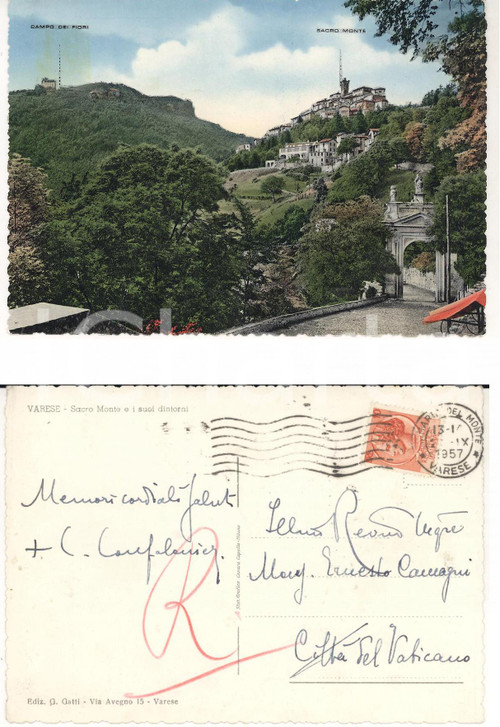 CAMPO DEI FIORI
SACRO MONTE
VARESE - Sacro Monte e i suoi dintorni
13-1
IX
1957
DEL MONTE
* VARESE *
Memori cordiali saluti
+ C. Confalonieri
R
Ill.mo Rev.mo
Mons. Ernesto Camagni
Città del Vaticano
Ediz. G. Gatti - Via Avegno 15 - Varese